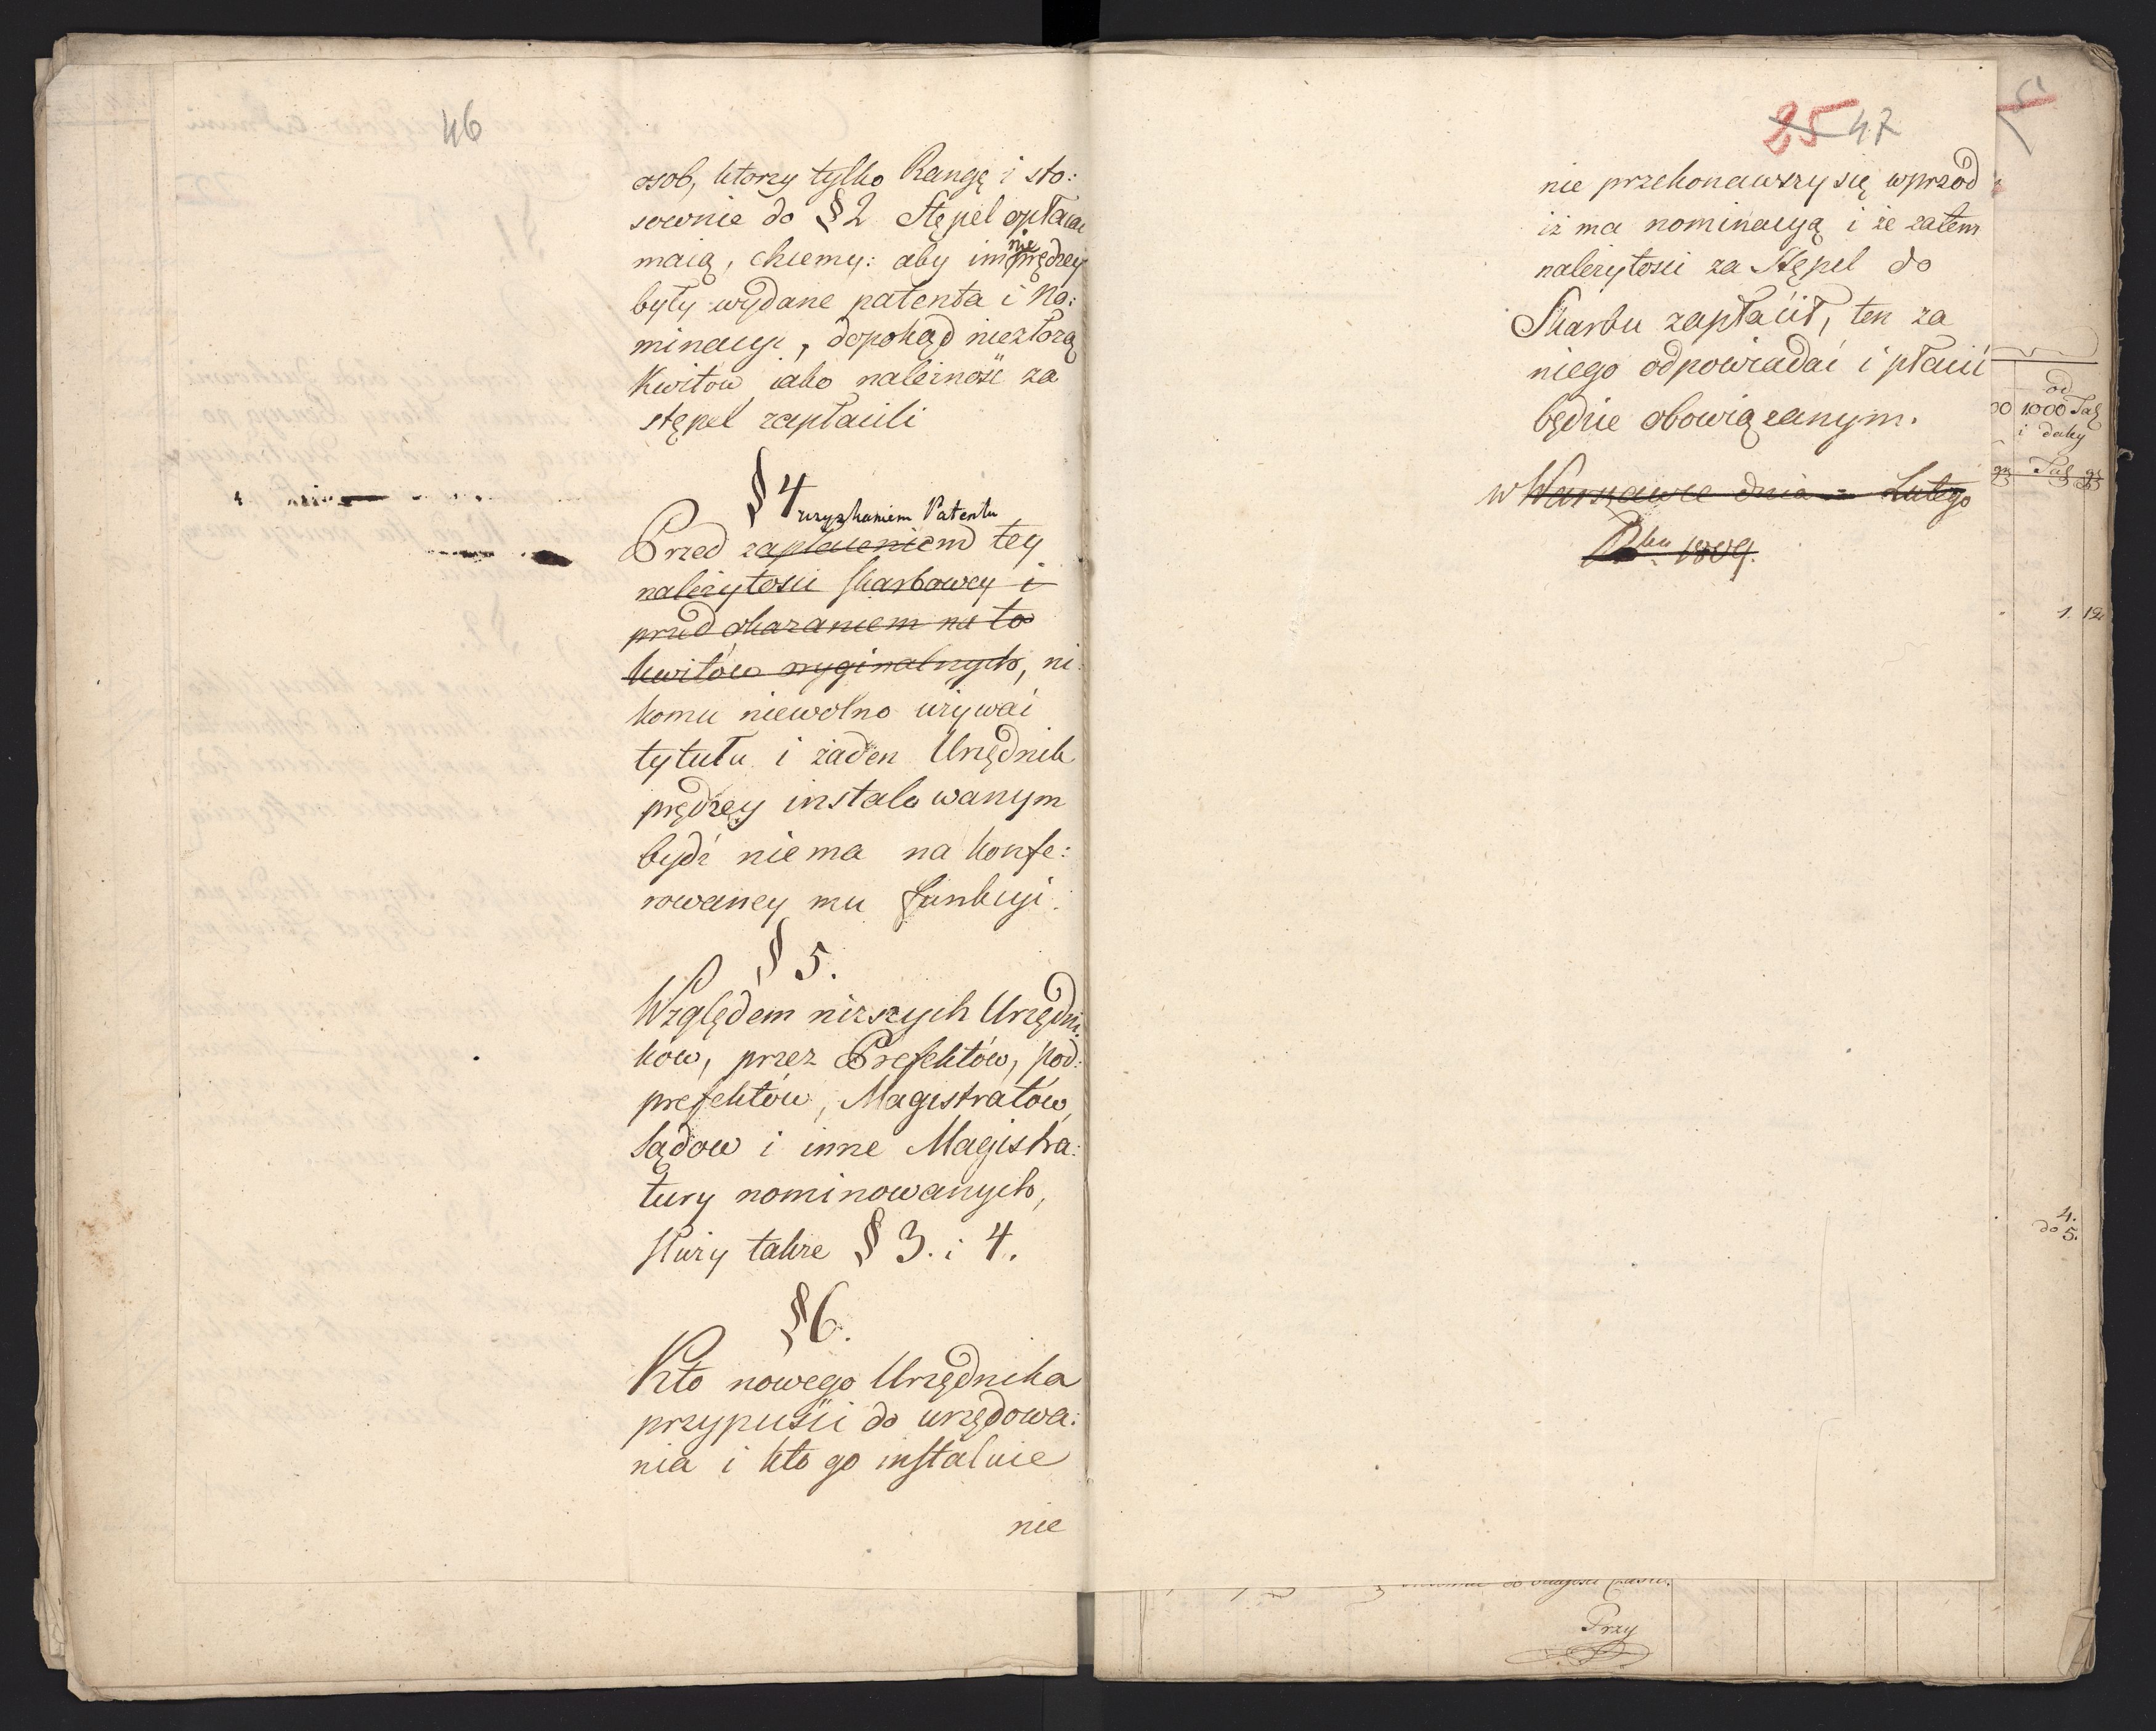 46
osob, ktorzy tylko Rangę i sto:
sownie do § 2 Stępel opłacac
maią, chcemy: aby im nie prędzey
były wydane patenta i No:
minacye, dopokąd niezłożą
Kwitow iako należność za
stępel zapłacili
§ 4
uzyskaniem Patentu
Przed zapłaceniem tey
należytości skarbowey i
przed okazaniem na to
kwitów oryginalnych, ni:
komu niewolno używać
tytułu i żaden Urzędnik
prędzey instalowanym
bydź niema na konfe:
rowaney mu funkcyi.
§ 5.
Względem niższych Urzędni:
kow, przez Prefektów, pod:
prefektów, Magistratów,
sądow i inne Magistra:
tury nominowanych,
służy także § 3. i 4.
§ 6.
Kto nowego Urzędnika
przypuści do urzędowa:
nia i kto go instaluie
nie
25 47
nie przekonawszy się wprzod
iż ma nominacyą i że zatem
należytości za Stępel do
Skarbu zapłacił, ten za
niego odpowiadać i płacić
będzie obowiązanym.
w Warszawie dnia = Lutego
1809.
od
1000 Tal
i daley
Tal gr
1. 12
4.
do 5.
Przy